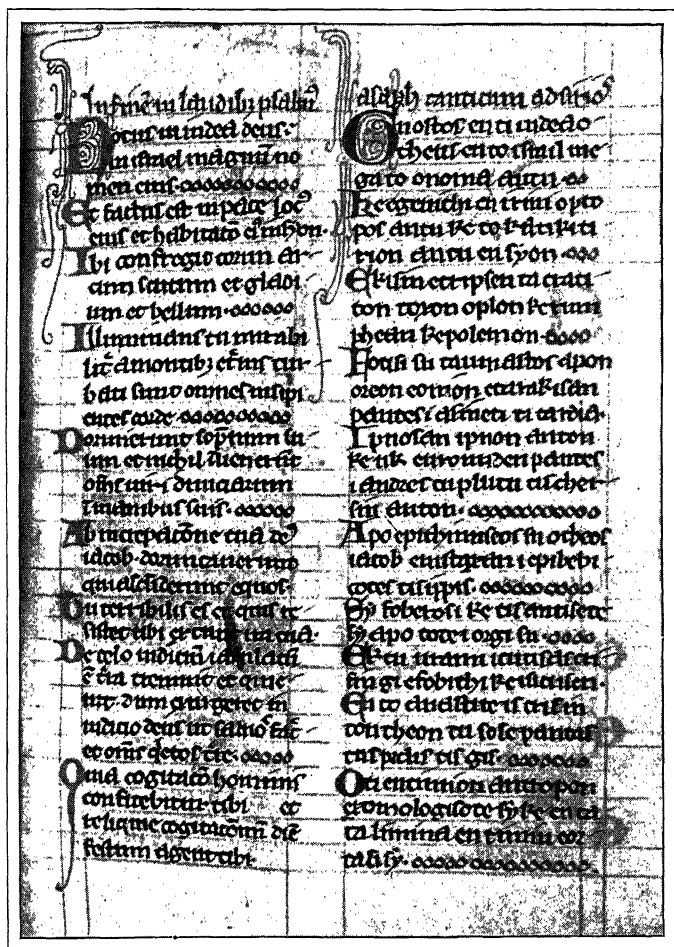 In finē in laudibꝫ psalmꝰ
Notus in iudea deus·
in israel magnū no
men eius·
Et factus est in pace locꝰ
eius et habitatō eiꝰ in syon·
Ibi confregit cornu ar
cum scutum et gladi
um et bellum·
Illuminans tu mirabi
lit̄ a montibꝫ et̄nis tur
bati sunt omnes insipi
entes corde
Dormierunt sopnum su
um et nichil iuenerūt
om̄s uiri diuiciarum
i manibus suis·
Ab increpatōne tua deꝰ
iacob dormitauerunt
qui ascēderunt equos·
Tu terribilis es et quis re
sistet tibi ex tunc ira tua·
De celo iudiciū
t̄ra tremuit et quie
uit· dum exurgeret in
iudicio deus ut saluos fac̄
et om̄s
Qm̄a cogitatō hominis
confitebitur tibi et
reliquie cogitatōnū diē
festum agent tibi·
asaph canticum ad
Gnostos en ti iudea o
theos en to israil me
ga to onoma autu
Ke egenithi en irini o to
pos autu ke to katikiti
rion autu en syon·
Eki sinetripsen ta crati
ton toxon oplon ke rum
phean ke polemon·
Fotisis su taumastos apon
oreon eonion etarakisan
pantes i asineti ti cardia·
Ipnosan ipnon auton
ke uk euron uden pantes
i andres tu plutu tis cher
sin auton·
Apo epithimiseos su o theos
iacob enistaxan i epibebi
cotes tis ippis·
Sy foberos i ke tis antistite
sy apo tote i orgi su·
Ek tu uranu
si·n gi efobithi ke isichasen·
En to anastine is crisin
ton theon tu sose pantas
tus prais tis gis·
Oti entimion antropon
exomologisete sy ke enca
ta limma entimiu eor
tasi sy·